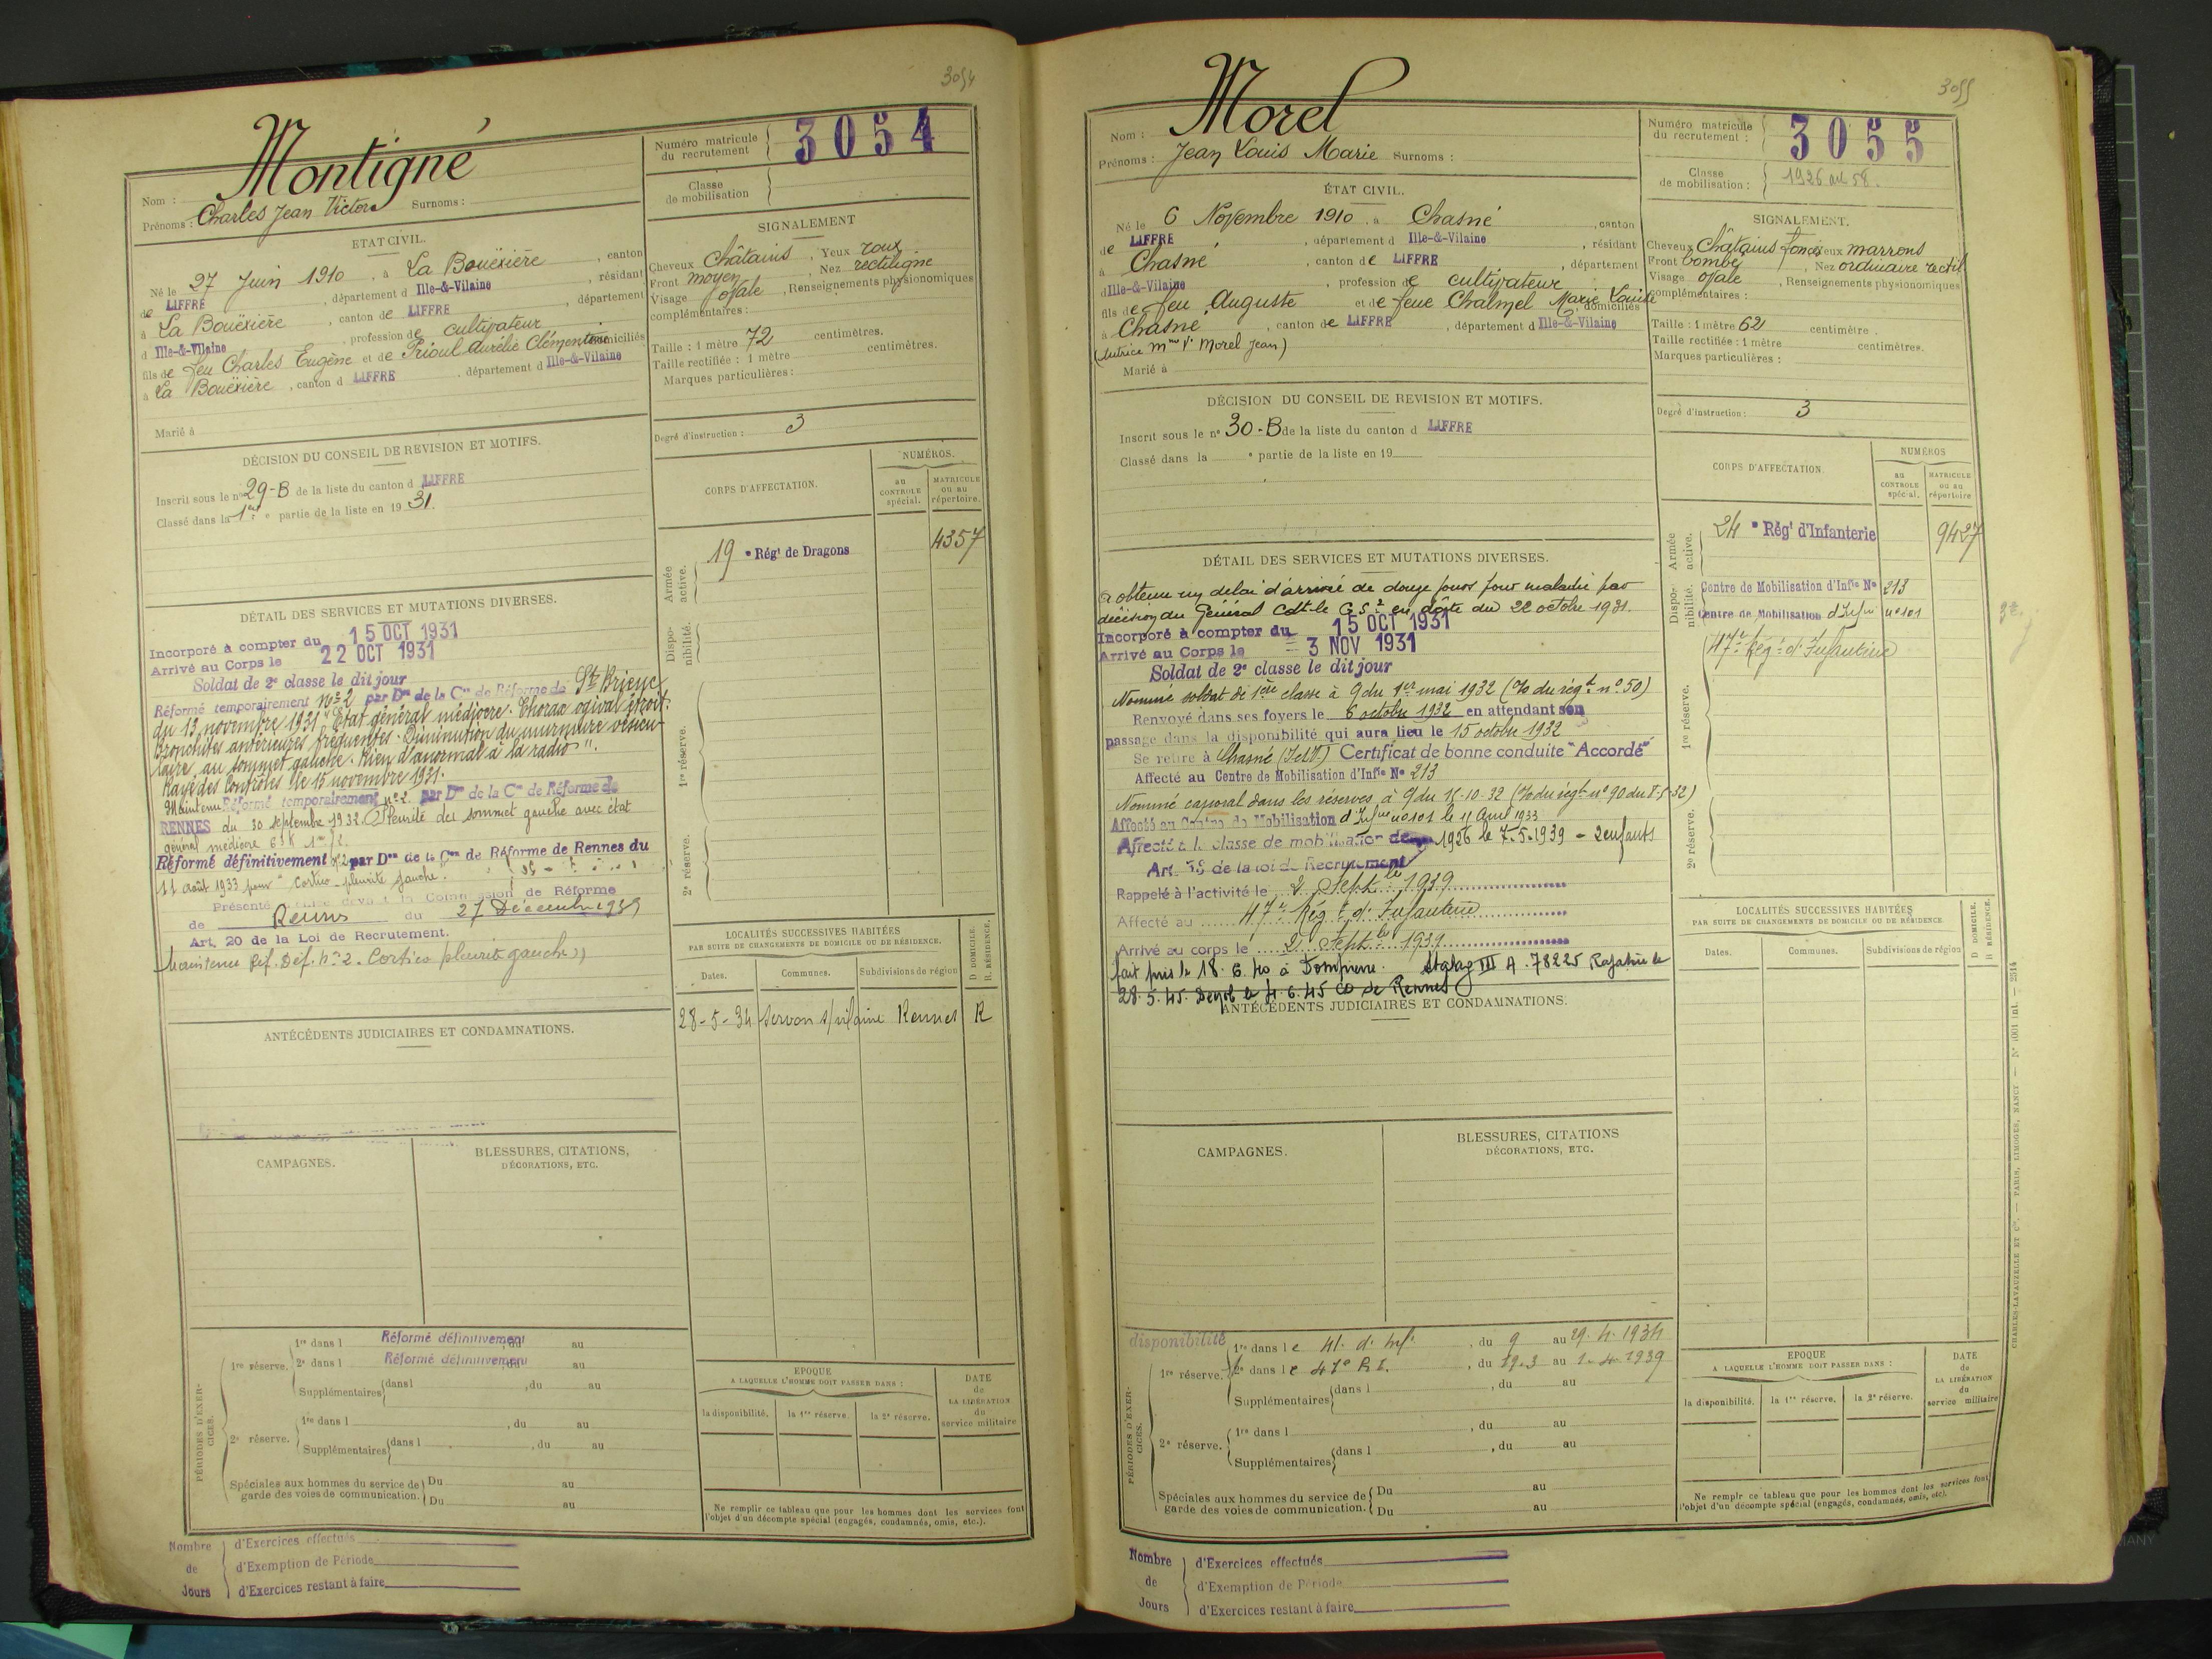 3054
Montigné
Nom :
Prénoms : Charles Jean Victor Surnoms :
Numéro matricule du recrutement 3054
Classe de mobilisation
ETAT CIVIL.
Né le 27 Juin 1910, à La Bouëxière, canton
de LIFFRE, département d Ille-&-Vilaine, résidant
à La Bouëxière, canton de LIFFRE, département
d Ille-&-Vilaine, profession de cultivateur
fils de feu Charles Eugène et de Prioul Aurélie Clémentine domiciliés
à La Bouëxière, canton d LIFFRE, département d Ille-&-Vilaine
Marié à
SIGNALEMENT
Cheveux Châtains, Yeux roux
Front moyen, Nez rectiligne
Visage ovale, Renseignements physionomiques
complémentaires :
Taille : 1 mètre 72 centimètres.
Taille rectifiée : 1 mètre centimètres.
Marques particulières :
Degré d'instruction : 3
DÉCISION DU CONSEIL DE REVISION ET MOTIFS.
Inscrit sous le n° 29-B de la liste du canton d LIFFRE
Classé dans la 1re e partie de la liste en 19 31.
CORPS D'AFFECTATION.
NUMÉROS.
au CONTROLE spécial.
MATRICULE ou au répertoire.
Armée active.
19 e Régt de Dragons 4357
Dispo- nibilité.
1re réserve.
2e réserve.
DÉTAIL DES SERVICES ET MUTATIONS DIVERSES.
Incorporé à compter du 15 OCT 1931
Arrivé au Corps le 22 OCT 1931
Soldat de 2e classe le dit jour
Réformé temporairement N° 2 par Don de la Con de Réforme de St Brieuc
du 13 novembre 1931 "Etat général médiocre. Thorax ogival étroit.
Bronchites antérieures fréquentes. Diminution du murmure vésicu-
laire, au sommet gauche. Rien d'anormal à la radio".
Rayé des Contrôles le 15 novembre 1931.
Maintenu Réformé temporairement n° 2 par Don de la Con de Réforme de
RENNES du 30 septembre 1932. Pleurite du sommet gauche avec état
général médiocre
Réformé définitivement N° 2 par Don de la Con de Réforme de Rennes du
11 août 1933 pour "Cortico-pleurite gauche.
Présenté devant la Commission de Réforme
de Rennes du 27 Décembre 1939
Art. 20 de la Loi de Recrutement.
Maintenu Réf. Déf. n° 2. Cortico pleurite gauche))
ANTÉCÉDENTS JUDICIAIRES ET CONDAMNATIONS.
LOCALITÉS SUCCESSIVES HABITÉES
PAR SUITE DE CHANGEMENTS DE DOMICILE OU DE RÉSIDENCE.
D. DOMICILE. R. RÉSIDENCE.
Dates. Communes. Subdivisions de région
28-5-34 Servon s/vilaine Rennes R
CAMPAGNES.
BLESSURES, CITATIONS, DÉCORATIONS, ETC.
PÉRIODES D'EXER- CICES.
1re réserve.
1re dans l Réformé définitivement, du au
2e dans l Réformé définitivement, du au
Supplémentaires dans l, du au
2e réserve.
1re dans l, du au
Supplémentaires dans l, du au
Spéciales aux hommes du service de garde des voies de communication.
Du au
Du au
EPOQUE
A LAQUELLE L'HOMME DOIT PASSER DANS :
la disponibilité. la 1re réserve. la 2e réserve.
DATE de LA LIBÉRATION du service militaire
Ne remplir ce tableau que pour les hommes dont les services font
l'objet d'un décompte spécial (engagés, condamnés, omis, etc.).
Nombre de Jours
d'Exercices effectués
d'Exemption de Période
d'Exercices restant à faire
3055
Nom : Morel
Prénoms : Jean Louis Marie Surnoms :
Numéro matricule du recrutement : 3055
Classe de mobilisation : 1926 art 58.
ÉTAT CIVIL.
Né le 6 Novembre 1910, à Chasné, canton
de LIFFRE, département d Ille-&-Vilaine, résidant
à Chasné, canton de LIFFRE, département
d Ille-&-Vilaine, profession de cultivateur
fils de feu Auguste et de feue Chalmel Marie Louise domiciliés
à Chasné, canton de LIFFRE, département d Ille-&-Vilaine
(tutrice Mme Ve Morel Jean)
Marié à
SIGNALEMENT.
Cheveux Châtains foncés Yeux marrons
Front bombé, Nez ordinaire rectil
Visage ovale, Renseignements physionomiques
complémentaires :
Taille : 1 mètre 62 centimètre.
Taille rectifiée : 1 mètre centimètres.
Marques particulières :
Degré d'instruction : 3
DÉCISION DU CONSEIL DE REVISION ET MOTIFS.
Inscrit sous le n° 30-B de la liste du canton d LIFFRE
Classé dans la e partie de la liste en 19
CORPS D'AFFECTATION.
NUMÉROS
au CONTROLE spécial.
MATRICULE ou au répertoire
Armée active.
24 e Régt d'Infanterie 9427
Dispo- nibilité.
Centre de Mobilisation d'Infie N° 213
Centre de Mobilisation d'Infie n° 101
1re réserve.
47e Régt d'Infanterie
2e réserve.
DÉTAIL DES SERVICES ET MUTATIONS DIVERSES.
A obtenu un délai d'arrivée de douze jours pour maladie par
décision du Général Cdt le G.S.2 en date du 22 octobre 1931.
Incorporé à compter du 15 OCT 1931
Arrivé au Corps le = 3 NOV 1931
Soldat de 2e classe le dit jour
Nommé soldat de 1ère classe à 9 du 1er mai 1932 (% du régt n° 50)
Renvoyé dans ses foyers le 6 octobre 1932 en attendant son
passage dans la disponibilité qui aura lieu le 15 octobre 1932
Se retire à Chasné (I et V.) Certificat de bonne conduite "Accordé"
Affecté au Centre de Mobilisation d'Infie N° 213
Nommé caporal dans les réserves à 9 du 15-10-32
Affecté au Centre de Mobilisation d'Infie n° 101 le 11 Avril 1933
Affecté à la classe de mobilisation de 1926 le 7-5-1939 - 2 enfants
Art. 58 de la loi de Recrutement
Rappelé à l'activité le 2 Septbre 1939
Affecté au 47e Régt d'Infanterie
Arrivé au corps le 2 Septbre 1939
fait pris. le 18.6.40 à Dompierre. Stalag III A. 78225 Rapatrié le
28.5.45. Demob le 4.6.45 CD de Rennes
ANTÉCÉDENTS JUDICIAIRES ET CONDAMNATIONS.
LOCALITÉS SUCCESSIVES HABITÉES
PAR SUITE DE CHANGEMENTS DE DOMICILE OU DE RÉSIDENCE.
D. DOMICILE. R. RÉSIDENCE.
Dates. Communes. Subdivisions de région
CAMPAGNES.
BLESSURES, CITATIONS DÉCORATIONS, ETC.
PÉRIODES D'EXER- CICES.
disponibilité 1re dans le 41. d'Inf., du 9 au 29.4.1934
1re réserve. dans le 47e R.I., du 12-3 au 1-4-1939
Supplémentaires dans l, du au
2e réserve.
1re dans l, du au
Supplémentaires dans l, du au
Spéciales aux hommes du service de garde des voies de communication.
Du au
Du au
EPOQUE
A LAQUELLE L'HOMME DOIT PASSER DANS :
la disponibilité. la 1re réserve. la 2e réserve.
DATE de LA LIBÉRATION du service militaire
Ne remplir ce tableau que pour les hommes dont les services font
l'objet d'un décompte spécial (engagés, condamnés, omis, etc).
Nombre de Jours
d'Exercices effectués
d'Exemption de Période
d'Exercices restant à faire
CHARLES-LAVAUZELLE ET Cie. — PARIS, LIMOGES, NANCY